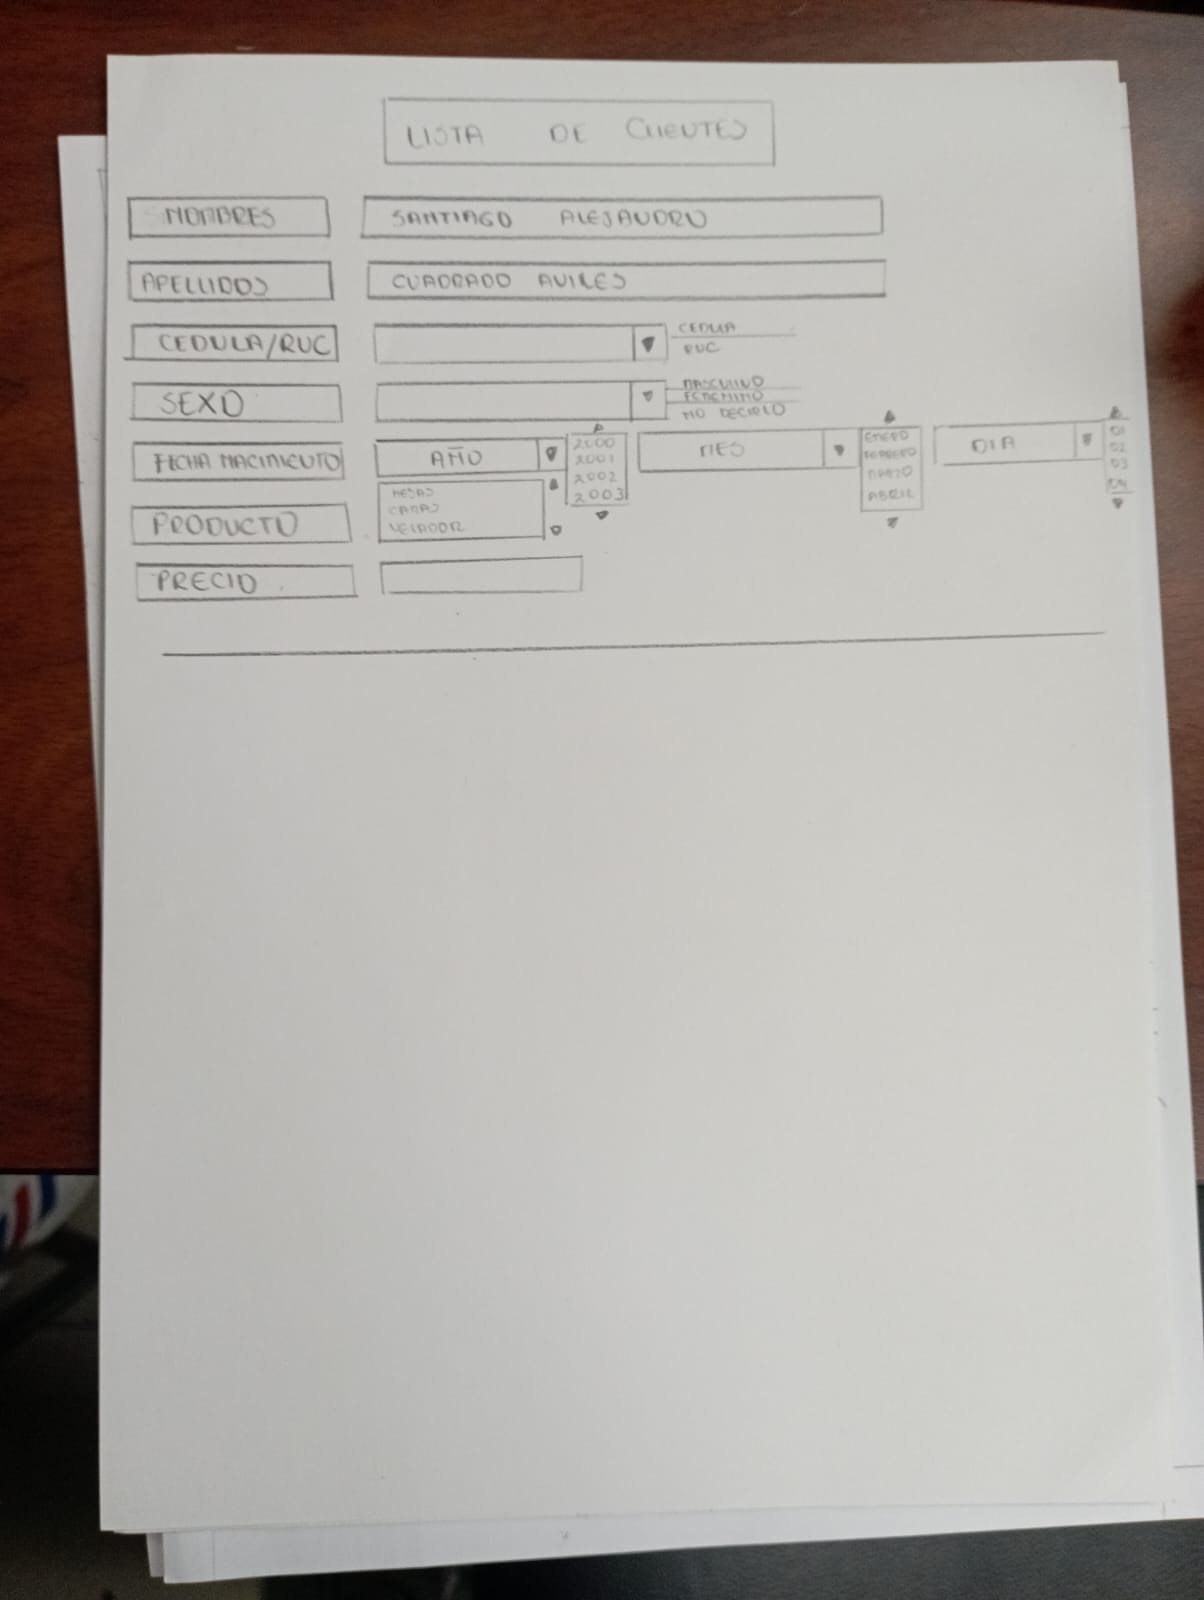 LISTA DE CLIENTES
NOMBRES SANTIAGO ALEJANDRO
APELLIDOS CUADRADO AVILES
CEDULA/RUC CEDULA
RUC
SEXO MASCULINO
FEMENINO
NO DECIRLO
FECHA NACIMIENTO AÑO 2000 MES ENERO DIA 01
2001 FEBRERO 02
2002 MARZO 03
2003 ABRIL 04
PRODUCTO MESAS
CAMAS
VELADOR
PRECIO